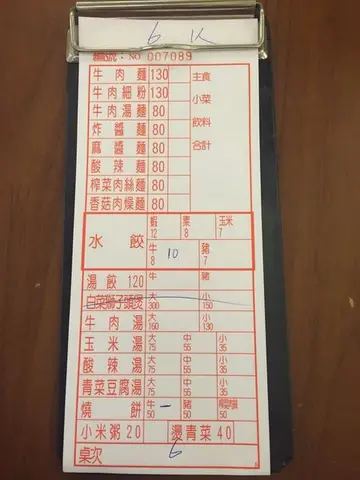 6 K
編號：NO 007089
牛肉麵 130 主食
牛肉細粉 130 小菜
牛肉湯麵 80 飲料
炸醬麵 80 合計
麻醬麵 80
酸辣麵 80
榨菜肉絲麵 80
香菇肉燥麵 80
水餃 蝦 12 素 8 玉米 7
牛 8 10 豬 7
湯餃 120 牛 豬
白菜獅子頭煲 大 300 小 150
牛肉湯 大 160 小 130
玉米湯 大 75 中 55 小 35
酸辣湯 大 75 中 55 小 35
青菜豆腐湯 大 75 中 55 小 35
燒餅 牛 50 一 豬 50 50
小米粥 20 燙青菜 40
桌次 6